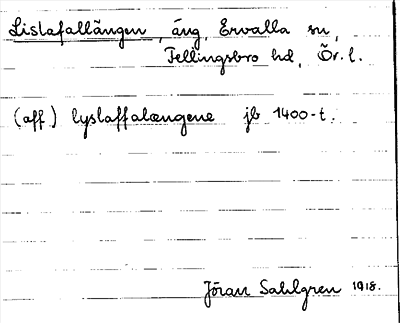 Lislafallängen, äng, Ervalla sn,
Fellingsbro hd, Ör. l.
(aff) lyslaffalængene jb 1400-t.
Jöran Sahlgren 1918.